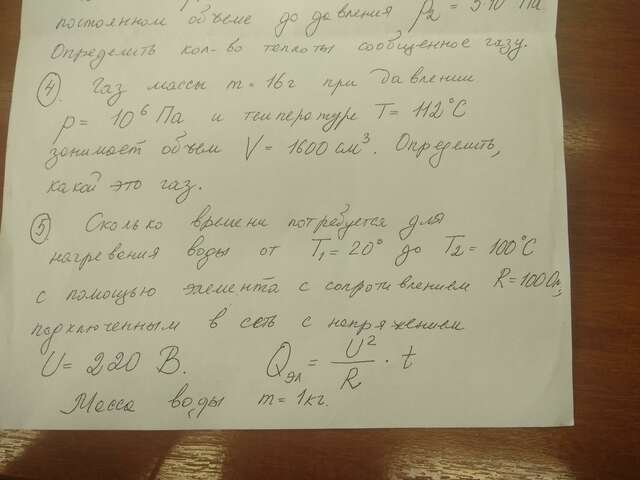 постоянном объеме до давления P₂ = 5·10 Па
Определить кол-во теплоты сообщенное газу.
④. Газ массы m = 16 г при давлении
p = 10⁶ Па и температуре T = 112°C
занимает объем V = 1600 см³. Определить,
какой это газ.
⑤ Сколько времени потребуется для
нагревания воды от T₁ = 20° до T₂ = 100°C
с помощью элемента с сопротивлением R = 100 Ом,
подключенным в сеть с напряжением
U = 220 В. Qэл = U²/R · t
Масса воды m = 1 кг.